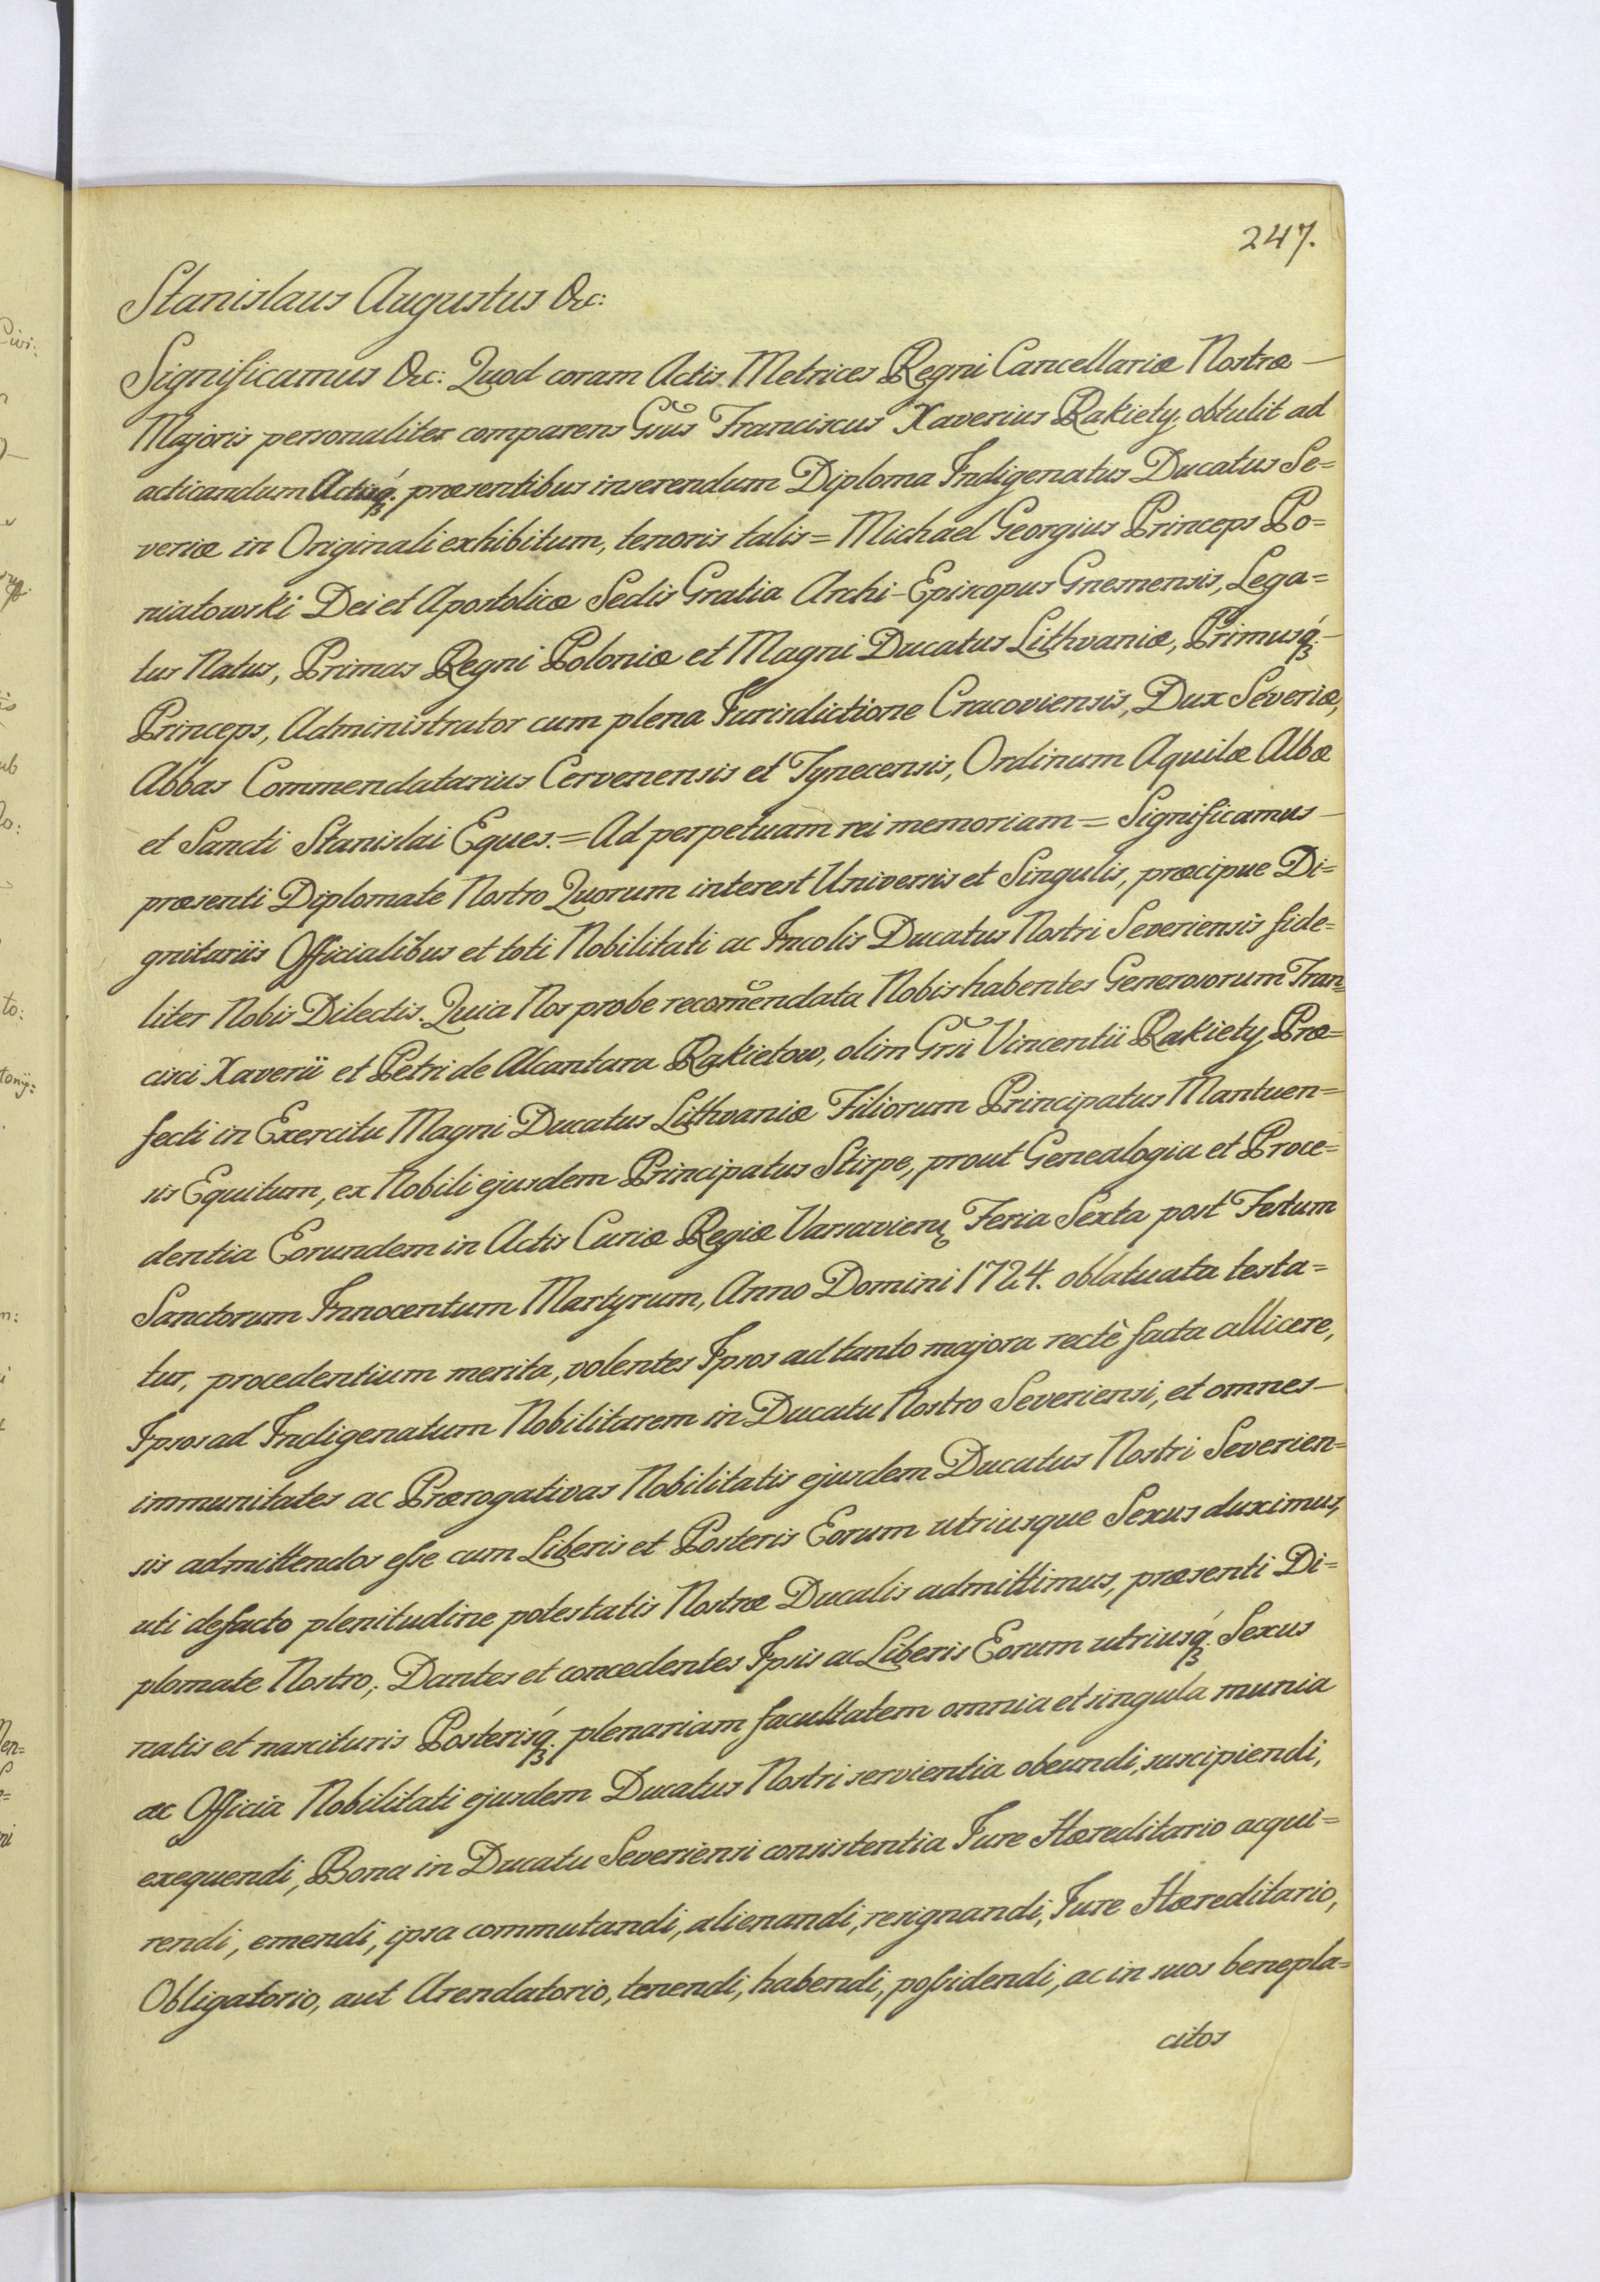 247.
Stanislaus Augustus &c:
Significamus &c: Quod coram Actis Metrices Regni Cancellariæ Nostræ —
Majoris personaliter comparens Gsus Franciscus Xaverius Rakiety, obtulit ad
acticandum Actisq́; præsentibus inserendum Diploma Indigenatus Ducatus Se=
veriæ in Originali exhibitum, tenoris talis = Michael Georgius Princeps Po=
niatowski Dei et Apostolicæ Sedis Gratia Archi-Episcopus Gnesnensis, Lega=
tus Natus, Primas Regni Poloniæ et Magni Ducatus Lithvaniæ, Primusq́; —
Princeps, Administrator cum plena Jurisdictione Cracoviensis, Dux Severiæ,
Abbas Commendatarius Cervenensis et Tynecensis, Ordinum Aquilæ Albæ
et Sancti Stanislai Eques. = Ad perpetuam rei memoriam = Significamus —
præsenti Diplomate Nostro Quorum interest Universis et Singulis, præcipue Di=
gnitariis Officialibus et toti Nobilitati ac Incolis Ducatus Nostri Severiensis fide=
liter Nobis Dilectis. Quia Nos probe recom̃endata Nobis habentes Generosorum Fran=
cisci Xaverii et Petri de Alcantara Rakietow, olim Gsii Vincentii Rakiety Præ=
fecti in Exercitu Magni Ducatus Lithvaniæ Filiorum Principatus Mantuen=
sis Equitum, ex Nobili ejusdem Principatus Stirpe, prout Genealogia et Proce=
dentia Eorundem in Actis Curiæ Regiæ Varsavien; Feria Sexta post Festum
Sanctorum Innocentum Martyrum, Anno Domini 1724. oblatuata testa=
tur, procedentium merita, volentes Ipsos ad tanto majora rectè facta allicere,
Ipsos ad Indigenatum Nobilitarem in Ducatu Nostro Severiensi, et omnes —
immunitates ac Prærogativas Nobilitatis ejusdem Ducatus Nostri Severien=
sis admittendos esse cum Liberis et Posteris Eorum utriusque Sexus duximus,
uti defacto plenitudine potestatis Nostræ Ducalis admittimus, præsenti Di=
plomate Nostro, Dantes et concedentes Ipsis ac Liberis Eorum utriusq́; Sexus
natis et nascituris Posterisq́; plenariam facultatem omnia et singula munia
ac Officia Nobilitati ejusdem Ducatus Nostri servientia obeundi, suscipiendi,
exequendi, Bona in Ducatu Severiensi consistentia Jure Hæreditario acqui=
rendi, emendi, ipsa commutandi, alienandi, resignandi, Jure Hæreditario,
Obligatorio, aut Arendatorio, tenendi, habendi, possidendi, ac in suos benepla=
citos